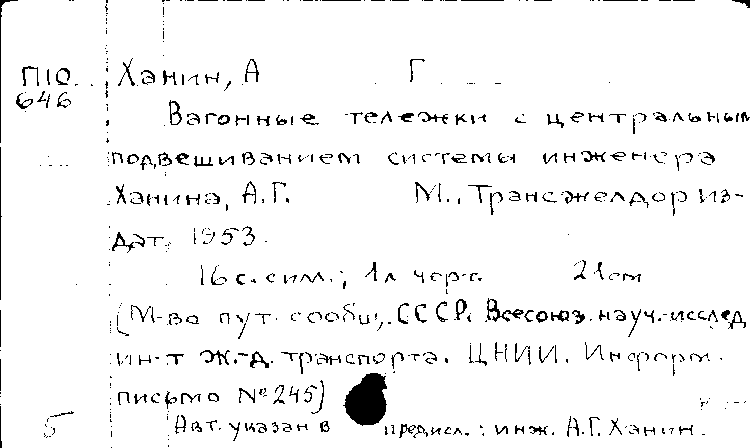 П10 Ханин, А Г
646
Вагонные тележки с центральным
подвешиванием системы инженера
Ханина, А.Г. М., Трансжелдориз-
дат, 1953.
16 с. с илл.; 1 л черт. 21 см
(М-во пут. сообщ. СССР. Всесоюз. науч.-исслед
ин-т ж.-д. транспорта. ЦНИИ. Информ.
письмо № 245)
5 Авт. указан в предисл.: инж. А.Г. Ханин.